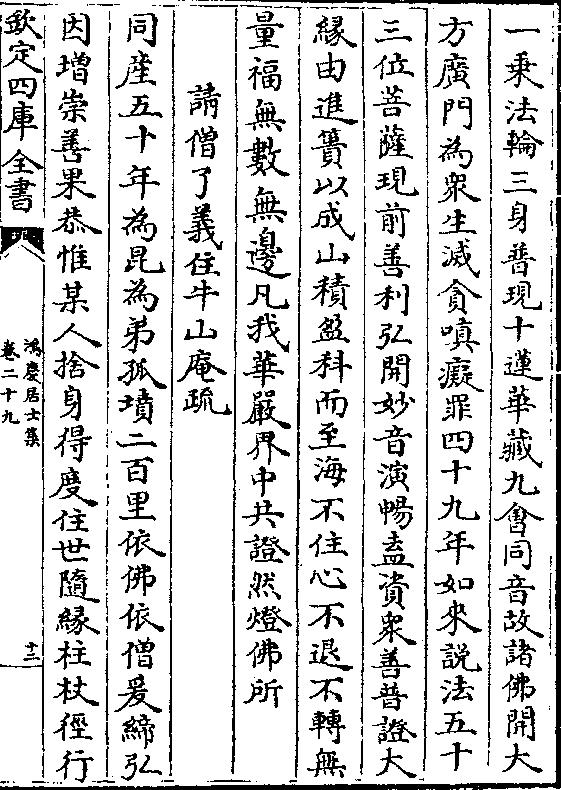 一乘法輪三身普現十蓮華藏九㑹同音故諸佛開大
方廣門為衆生滅貪嗔癡罪四十九年如來說法五十
三位菩薩現前善利弘開妙音演暢盍資衆善普證大
縁由進簣以成山積盈科而至海不住心不退不轉無
量福無數無邊凡我華嚴界中共證然燈佛所
請僧了義住牛山庵疏
同産五十年為昆為弟孤墳二百里依佛依僧爰締弘
因增崇善果恭惟某人捨身得度住世隨緣柱杖徑行
欽定四庫全書
鴻慶居士集
卷二十九
十二